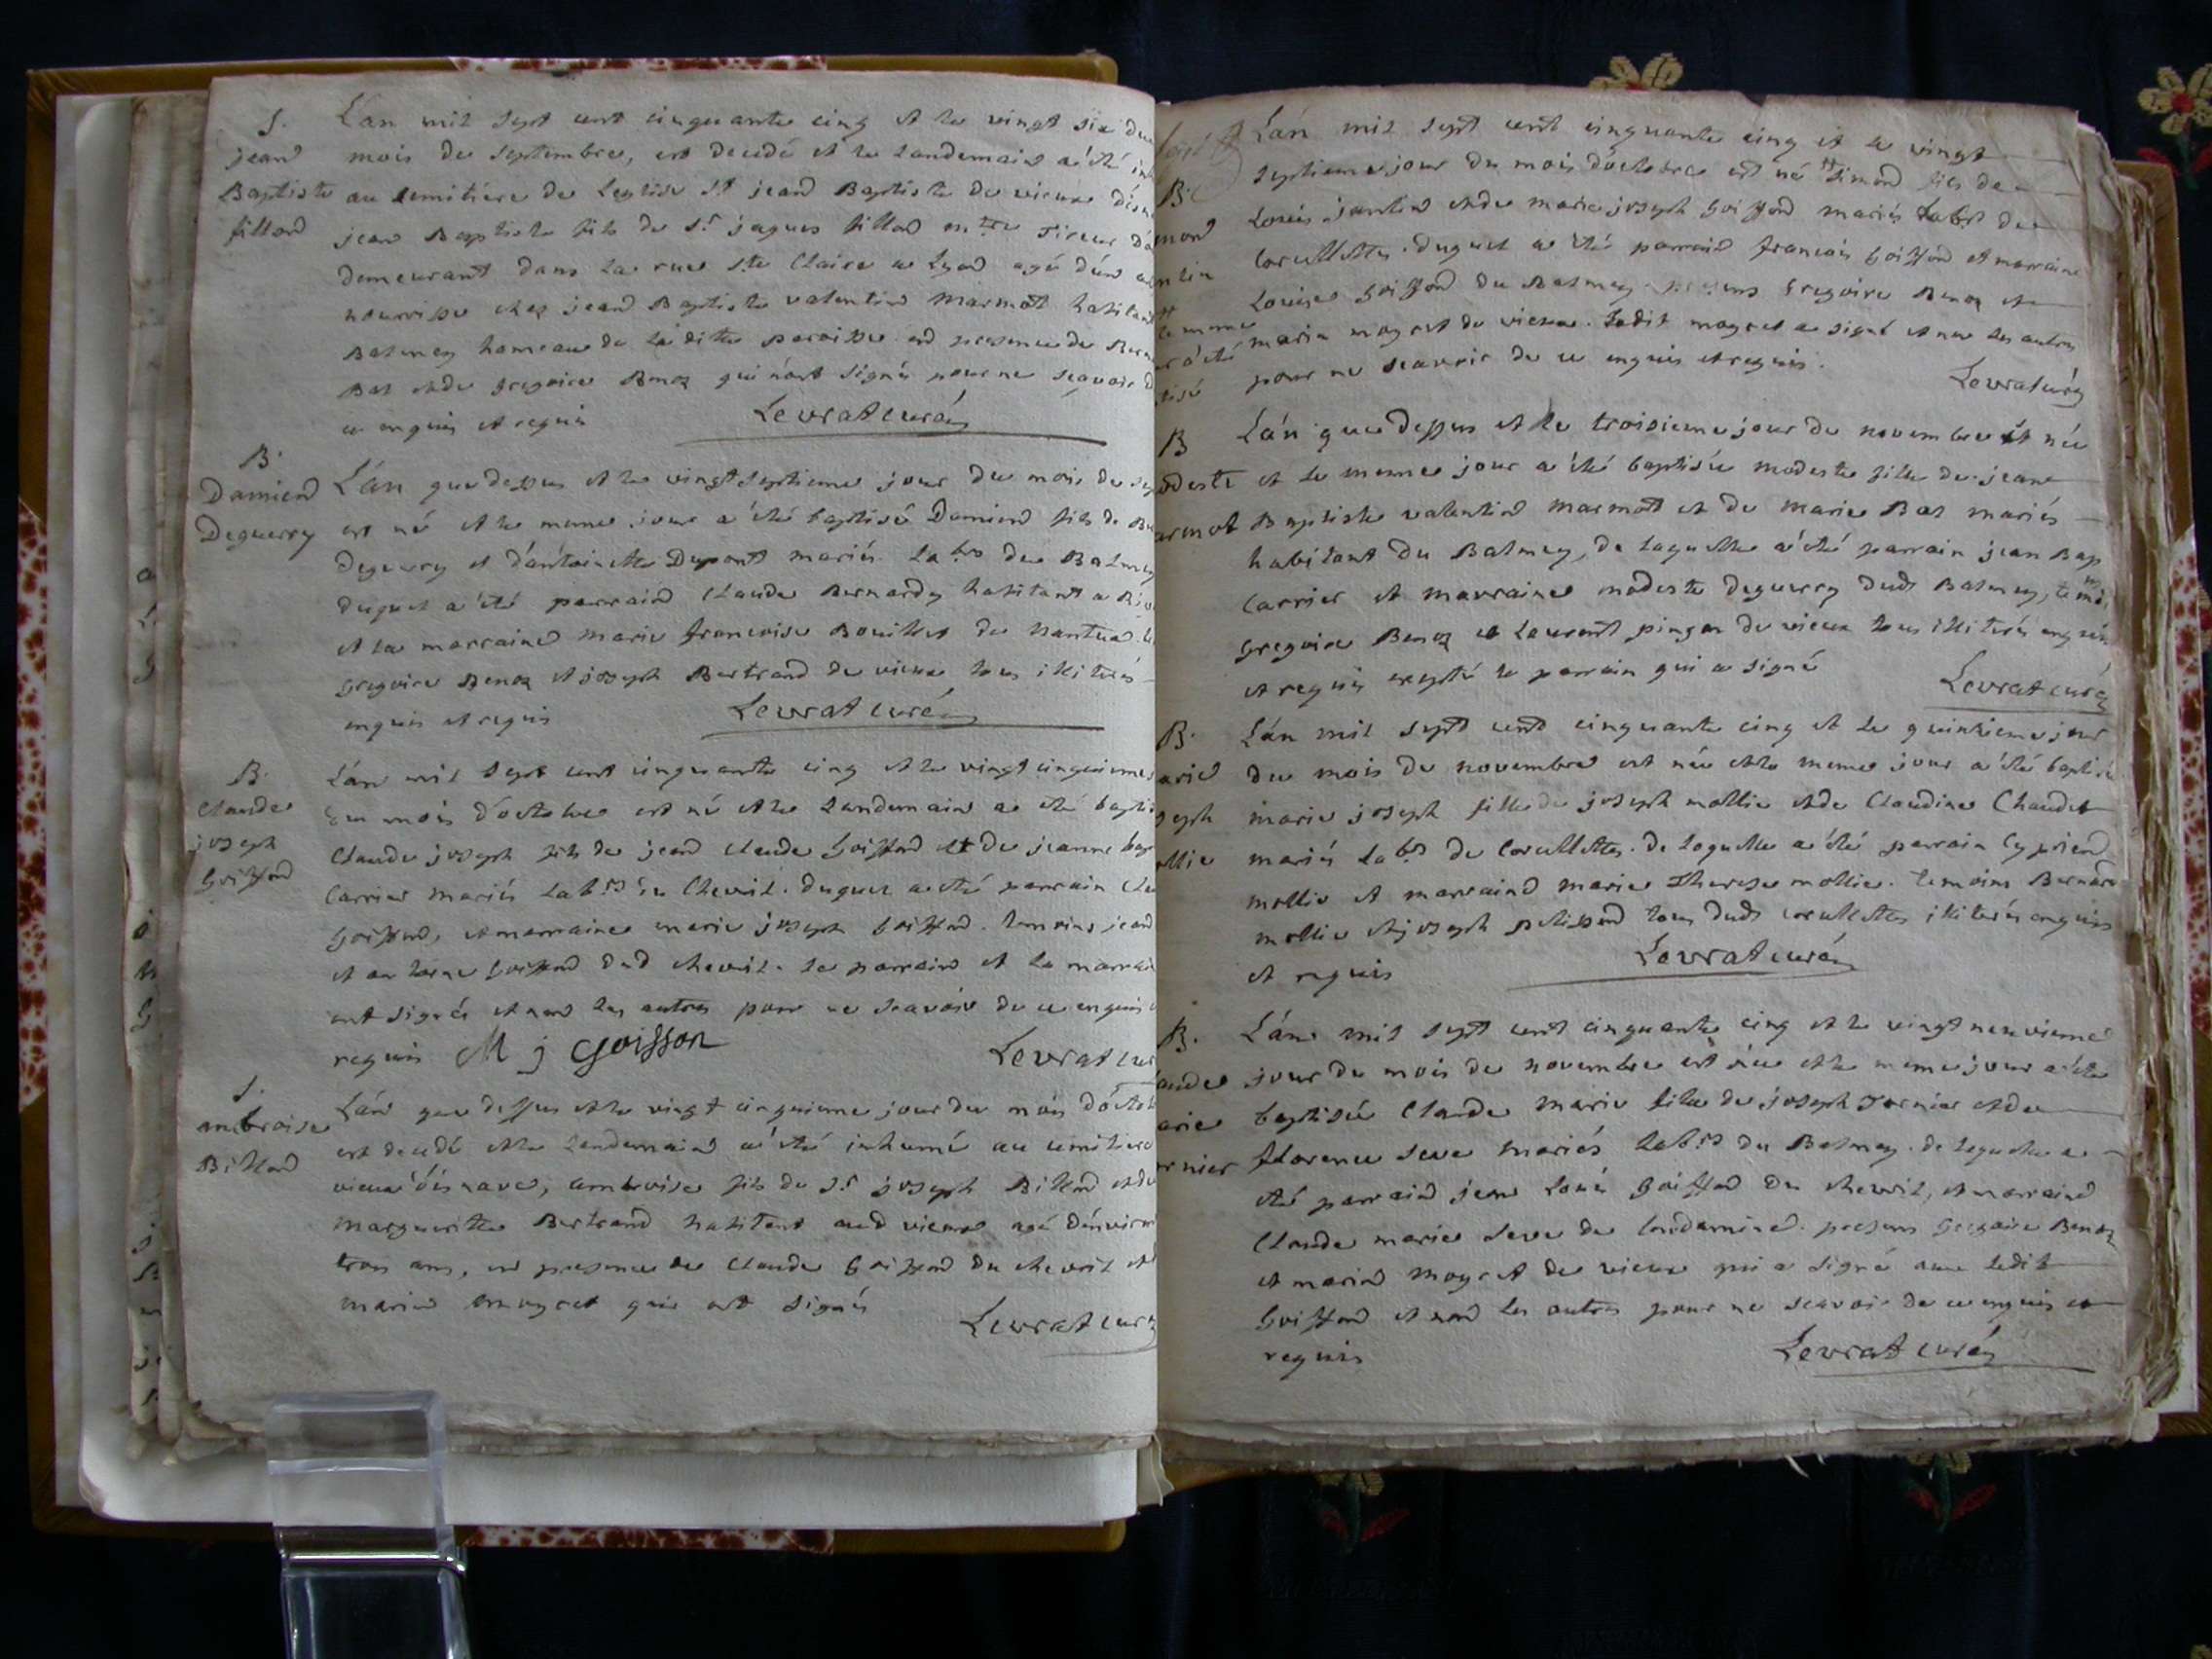 S.
jean
Baptiste
fillon
L'an mil sept cent cinquante cinq et le vingt six du
mois de septembre, est decedé et le landemain a été
au cemitiere de leglise st jean Baptiste de vieux
jean Baptiste fils de sr jaques fillon tireur
demeurant dans la rue ste Claire a Lyon agé d'un
nourrisse chez jean Baptiste valentin marmot habitant
Balmey hameau de la dite paroisse en presence de
Bal et de gregoire Benoz qui n'ont signés pour ne scavoir
ce enquis et requis Levrat curé
B.
Damien
Deguerry
L'an que dessus et le vingt septieme jour du mois de
est né et le meme jour a été baptisé Damien fils de
deguerry et d'antoinette Dupont mariés lab.rs du Balmey
duquel a été parrain Claude Bernardy habitant a
et la marraine marie francoise Bouillet de Nantua
gregoire Benoz et joseph Bertrand de vieux tous illiterés
enquis et requis Levrat curé
B.
Claude
joseph
Goiffon
L'an mil sept cent cinquante cinq et le vingt cinquieme
du mois d'octobre est né et le landemain a été
Claude joseph fils de jean claude Goiffon et de jeanne
Carrier mariés lab.rs du Chevril. duquel a été parrain
Goiffon, et marraine marie joseph Goiffon. temoins jean
et antoine Goiffon dud chevril. le parrain et la
ont signés et non les autres pour ne scavoir de ce enquis
requis M j Goiffon Levrat
S.
ambroise
Billion
L'an que dessus et le vingt cinquieme jour du mois
est decedé et le landemain a été inhumé au cemitiere
vieux d'isenave, ambroise fils de sr joseph Billion
marguerite Bertrand habitant aud vieux agé
trois ans, en presence de claude Goiffon du chevril
marin moyret qui ont signés
Levrat
L'an mil sept cent cinquante cinq et le vingt
septieme jour du mois d'octobre est né simon fils de
Louis jantin et de marie joseph Goiffon mariés lab.rs de
Corcellettes. duquel a été parrain francois Goiffon et marraine
Louise Goiffon du Balmey. presens Gregoire Benoz et
marin moyret de vieux. ledit moyret a signé et non les autres
pour ne scavoir de ce enquis et requis.
Levrat curé
B
L'an que dessus et le troisieme jour de novembre est née
et le meme jour a été baptisée modeste fille de jean
Baptiste valentin marmot et de marie Bal mariés
habitant du Balmey, de laquelle a été parrain jean Bap
Carrier et marraine modeste deguerry dudt Balmey,
gregoire Benoz et Laurent pingon de vieux tous illiterés
et requis excepté le parrain qui a signé
Levrat curé
B.
L'an mil sept cent cinquante cinq et le quinzieme jour
du mois de novembre est née et le meme jour a été baptisée
marie joseph fille de joseph mollie et de Claudine Chaudet
mariés lab.rs de Corcellettes. de laquelle a été parrain Cyprien
mollie et marraine marie Therese mollie. temoins Bernard
mollie et joseph tous dudt corcellettes illiterés enquis
et requis Levrat curé
B.
L'an mil sept cent cinquante cinq et le vingt neuvieme
jour du mois de novembre est née et le meme jour a été
baptisée Claude marie fille de joseph Tornier et de
florence seve mariés lab.rs du Balmey. de laquelle a
été parrain jean Louis Goiffon du chevril, et marraine
Claude marie seve de Condamine. presens Gregoire Benoz
et marin moyret de vieux qui a signé avec ledit
Goiffon et non les autres pour ne scavoir de ce enquis et
requis Levrat curé